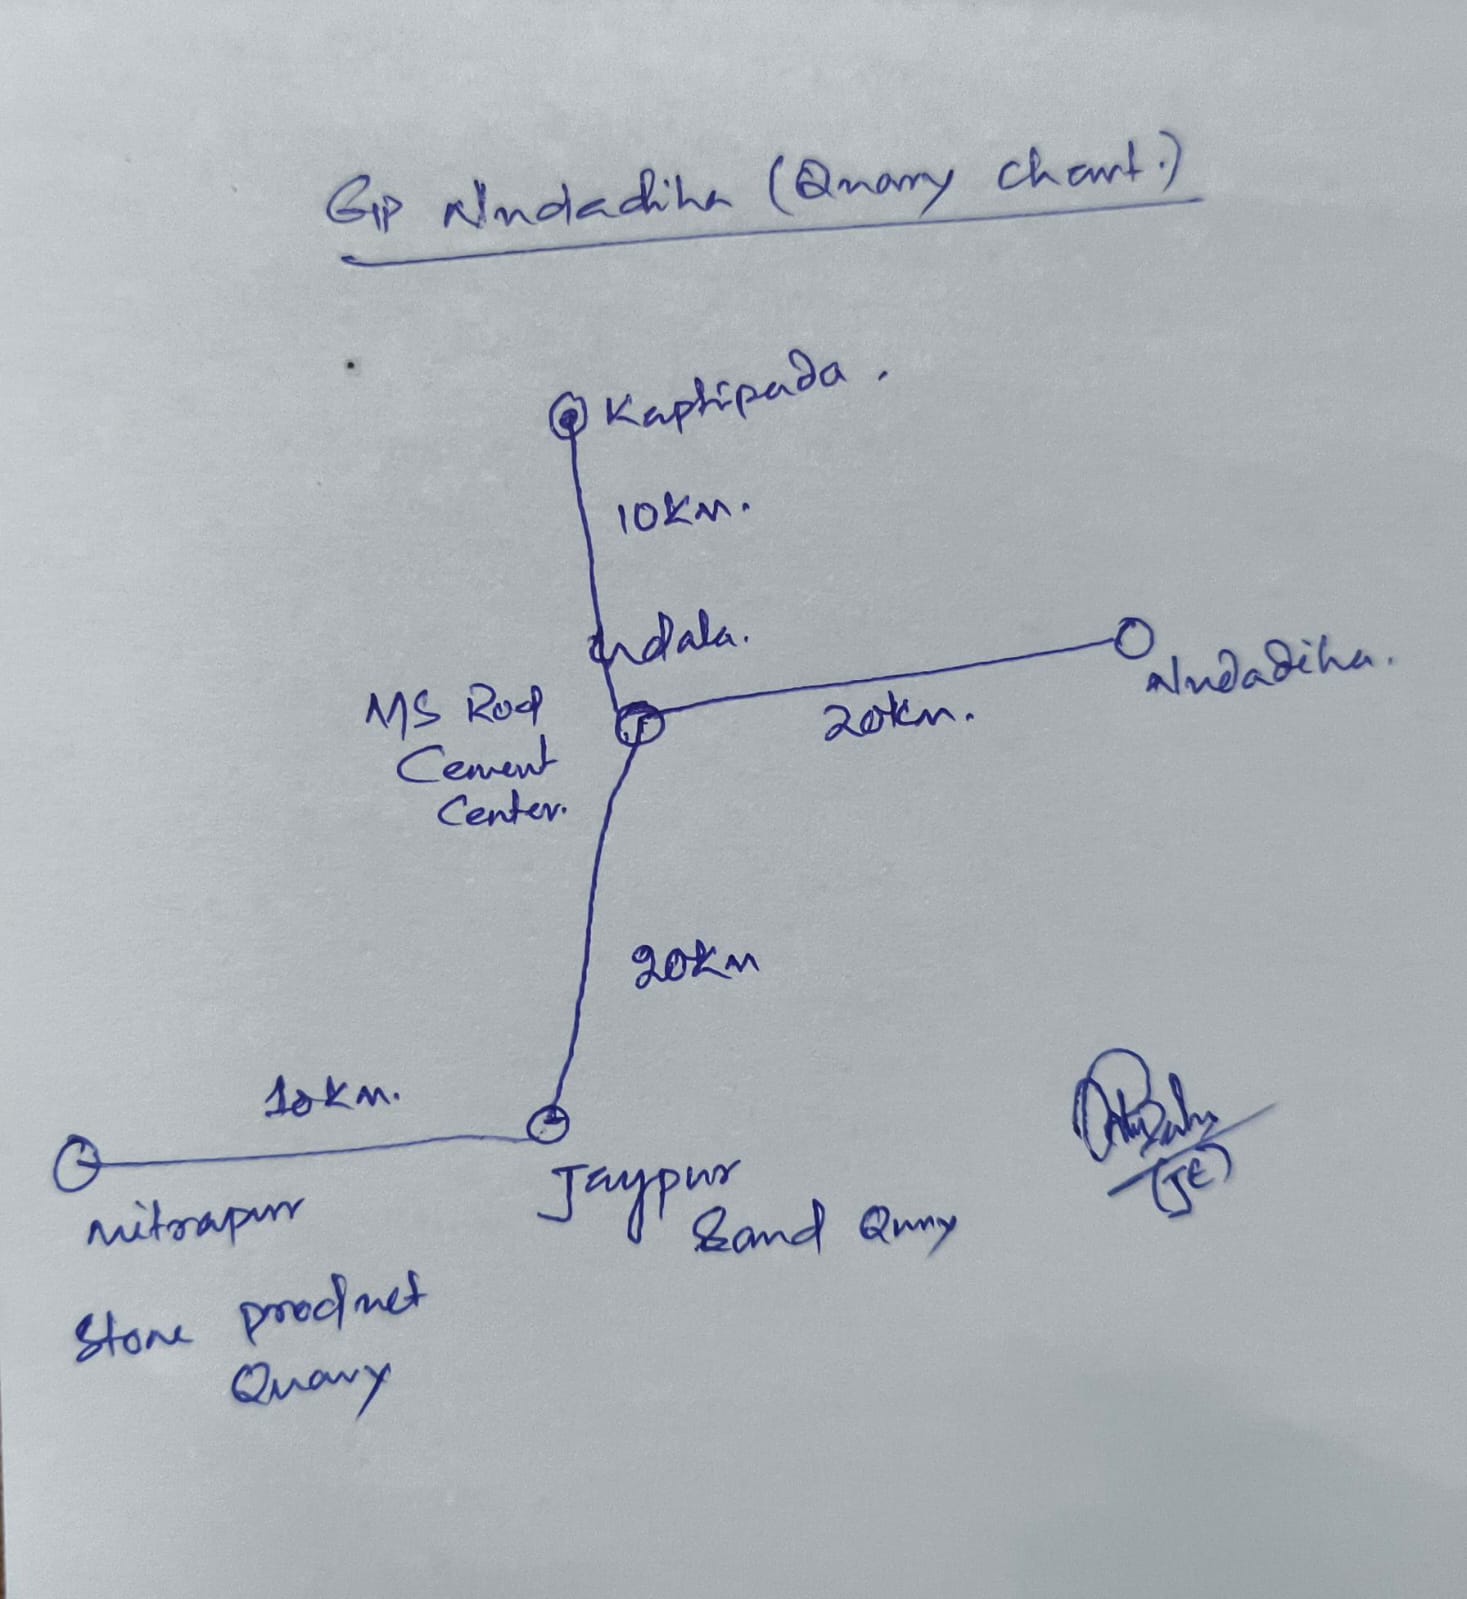 GP Nudadiha (Quarry Chart.)
Kaptipada.
10KM.
Udala.
MS Rod
Cement
Center.
20km.
Nudadiha.
20KM
10KM.
Mitrapur
Stone product
Quarry
Jaypur
Sand Quarry
(JE)